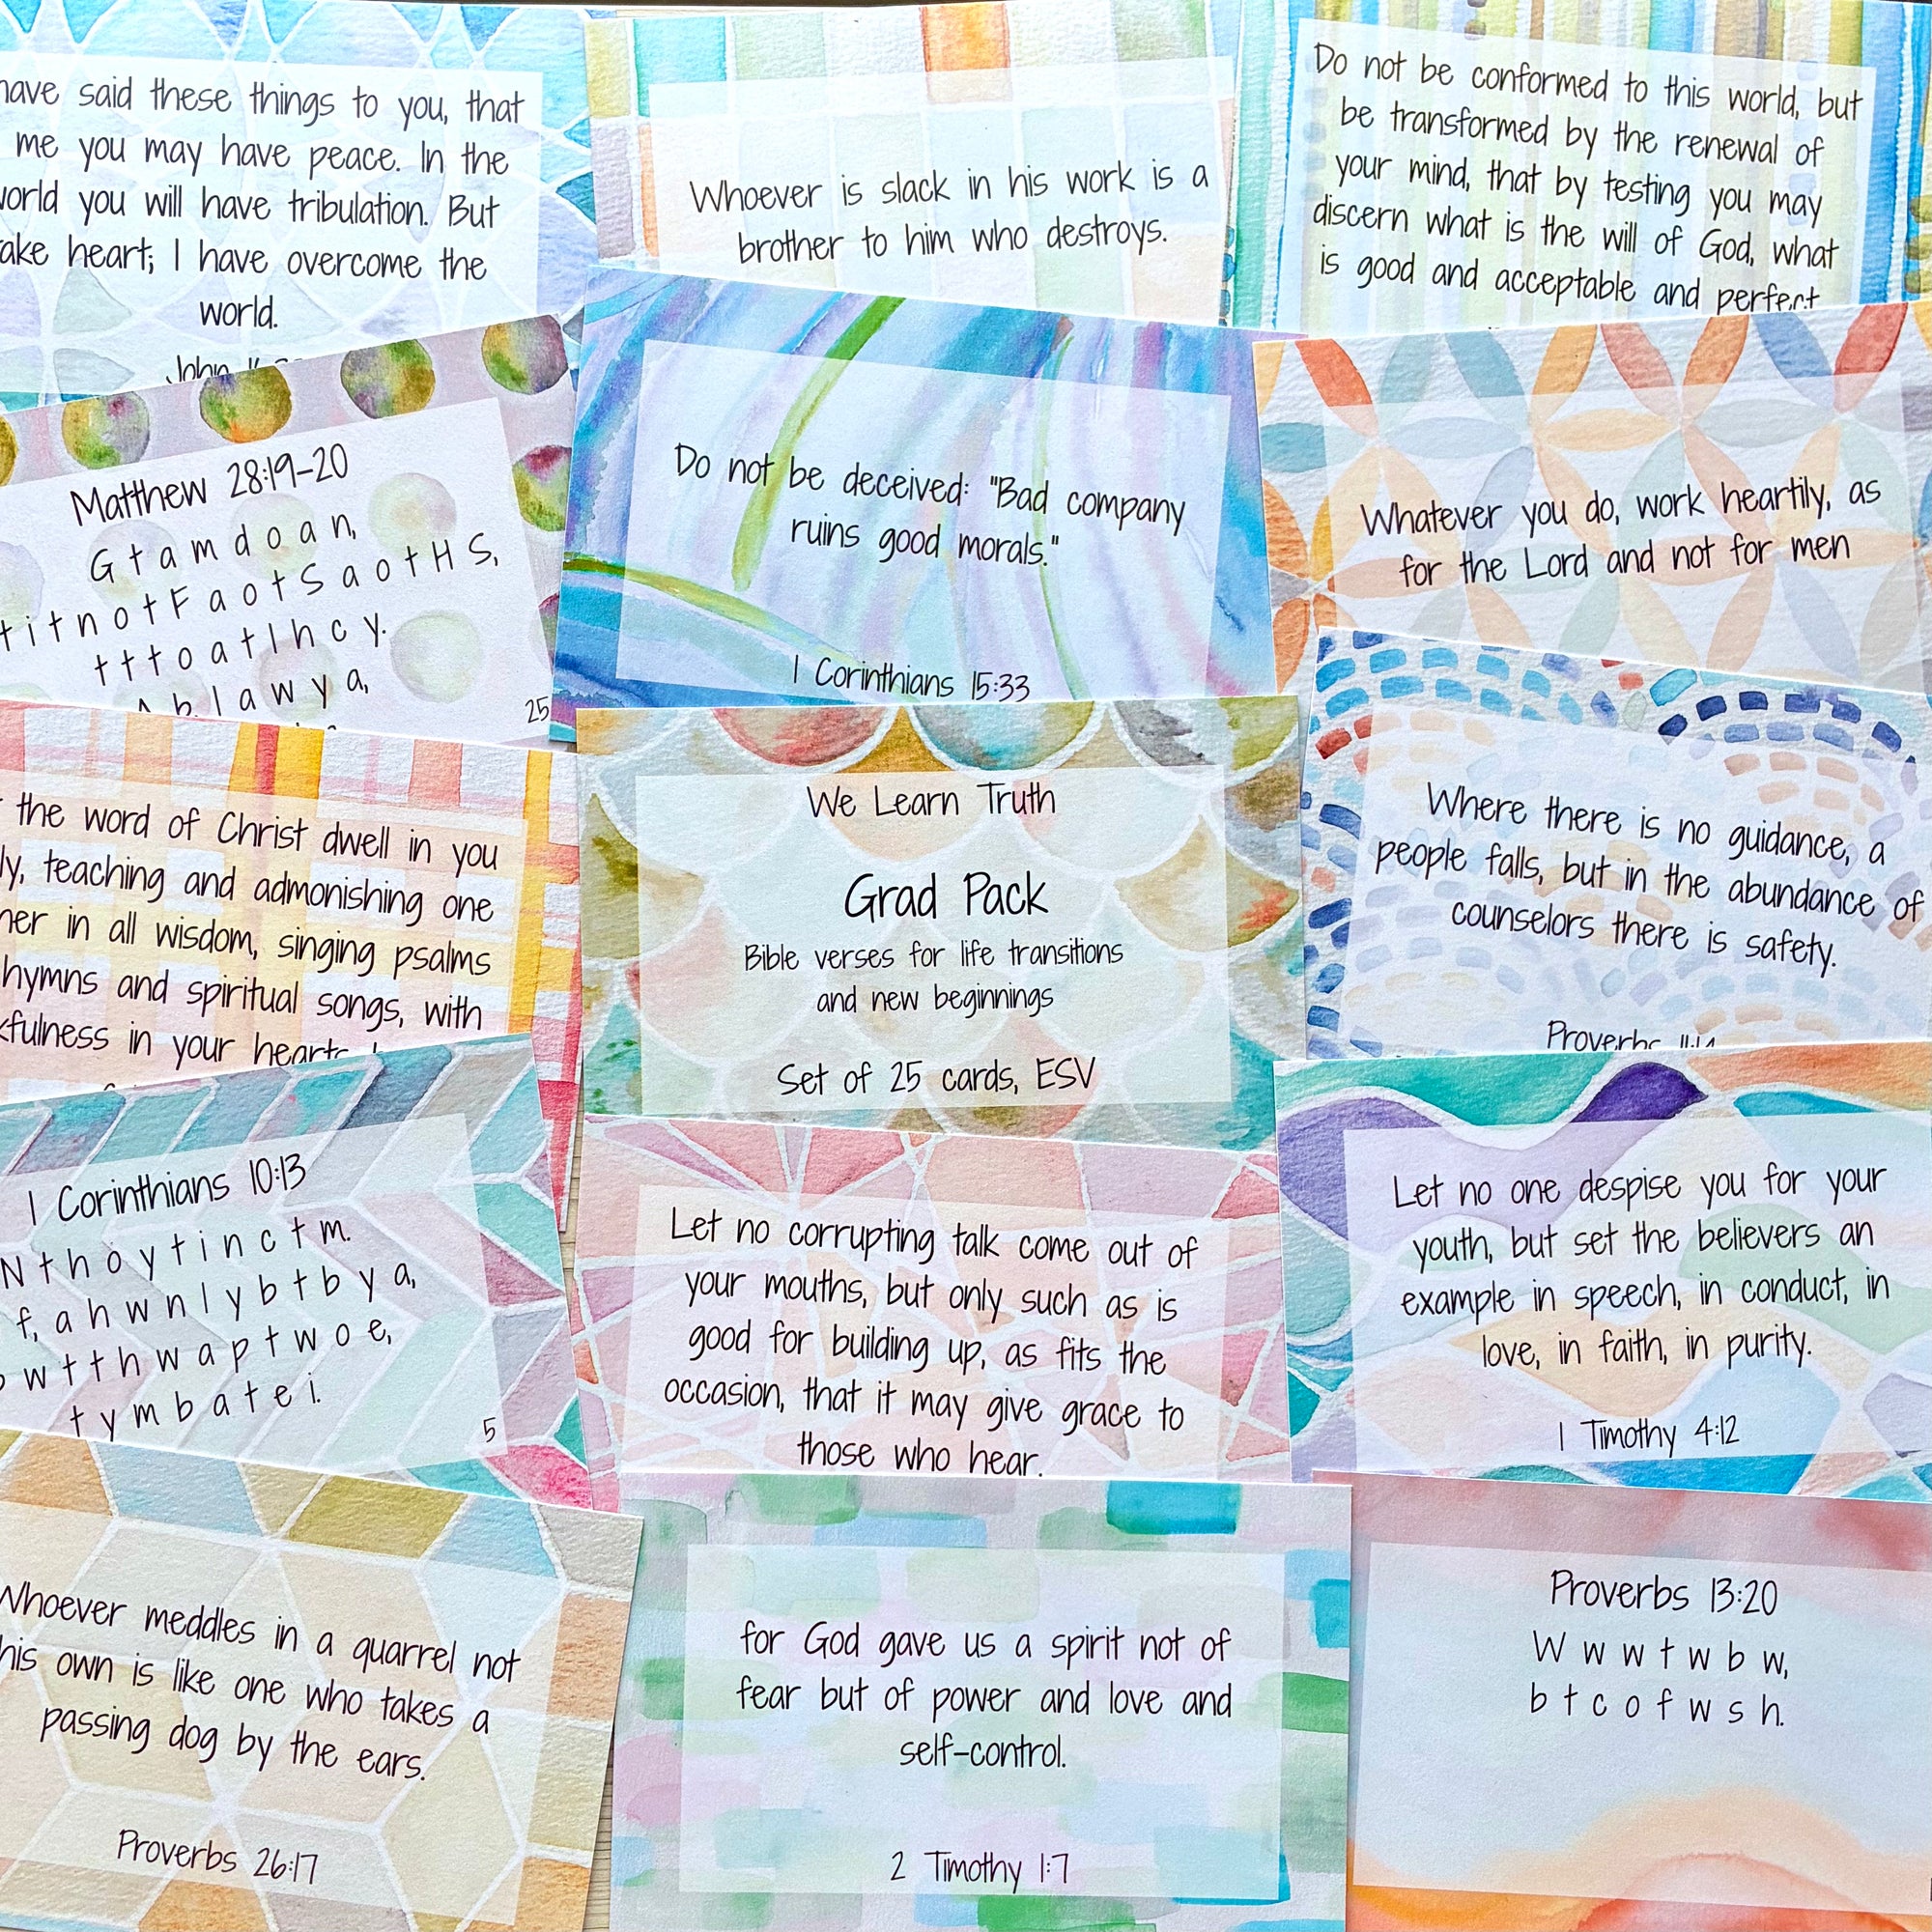 have said these things to you, that
me you may have peace. In the
world you will have tribulation. But
take heart; I have overcome the
world.
John
Whoever is slack in his work is a
brother to him who destroys.
Do not be conformed to this world, but
be transformed by the renewal of
your mind, that by testing you may
discern what is the will of God, what
is good and acceptable and perfect
Matthew 28:19-20
G t a m d o a n,
t i t n o t F a o t S a o t H S,
t t t o a t I h c y.
A b I a w y a,
25
Do not be deceived: "Bad company
ruins good morals."
1 Corinthians 15:33
Whatever you do, work heartily, as
for the Lord and not for men
the word of Christ dwell in you
ly, teaching and admonishing one
her in all wisdom, singing psalms
hymns and spiritual songs, with
kfulness in your hearts
We Learn Truth
Grad Pack
Bible verses for life transitions
and new beginnings
Set of 25 cards, ESV
Where there is no guidance, a
people falls, but in the abundance of
counselors there is safety.
Proverbs 11:14
1 Corinthians 10:13
N t h o y t i n c t m.
f, a h w n l y b t b y a,
w t t h w a p t w o e,
t y m b a t e i.
5
Let no corrupting talk come out of
your mouths, but only such as is
good for building up, as fits the
occasion, that it may give grace to
those who hear.
Let no one despise you for your
youth, but set the believers an
example in speech, in conduct, in
love, in faith, in purity.
1 Timothy 4:12
Whoever meddles in a quarrel not
his own is like one who takes a
passing dog by the ears.
Proverbs 26:17
for God gave us a spirit not of
fear but of power and love and
self-control.
2 Timothy 1:7
Proverbs 13:20
W w w t w b w,
b t c o f w s h.